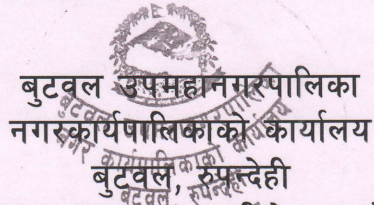 बुटवल उपमहानगरपालिका
नगरकार्यपालिकाको कार्यालय
बुटवल, रुपन्देही